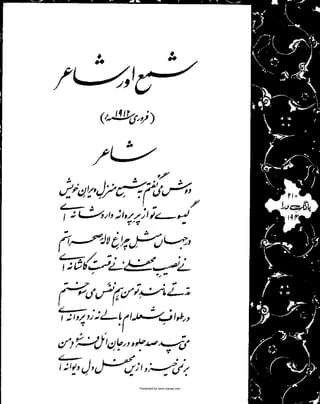 شمع اور شاعر
(فروری ۱۹۱۲ء)
شاعر
دوش می گفتم بہ شمع منزل ویران خویش
گیسوے تو از پر پروانہ دارد شانہ اے
درجہاں مثل چراغ لالۂ صحراستم
نے نصیب محفلے نے قسمت کاشانہ اے
مدتے مانند تو من ہم نفس می سوختم
در طواف شعلہ ام بالے نہ زد پروانہ اے
می تپد صد جلوہ در جان امل فرسود من
بر نمی خیزد ازیں محفل دل دیوانہ اے
۲۱۰
بانگ درا
Presented by www.ziaraat.com